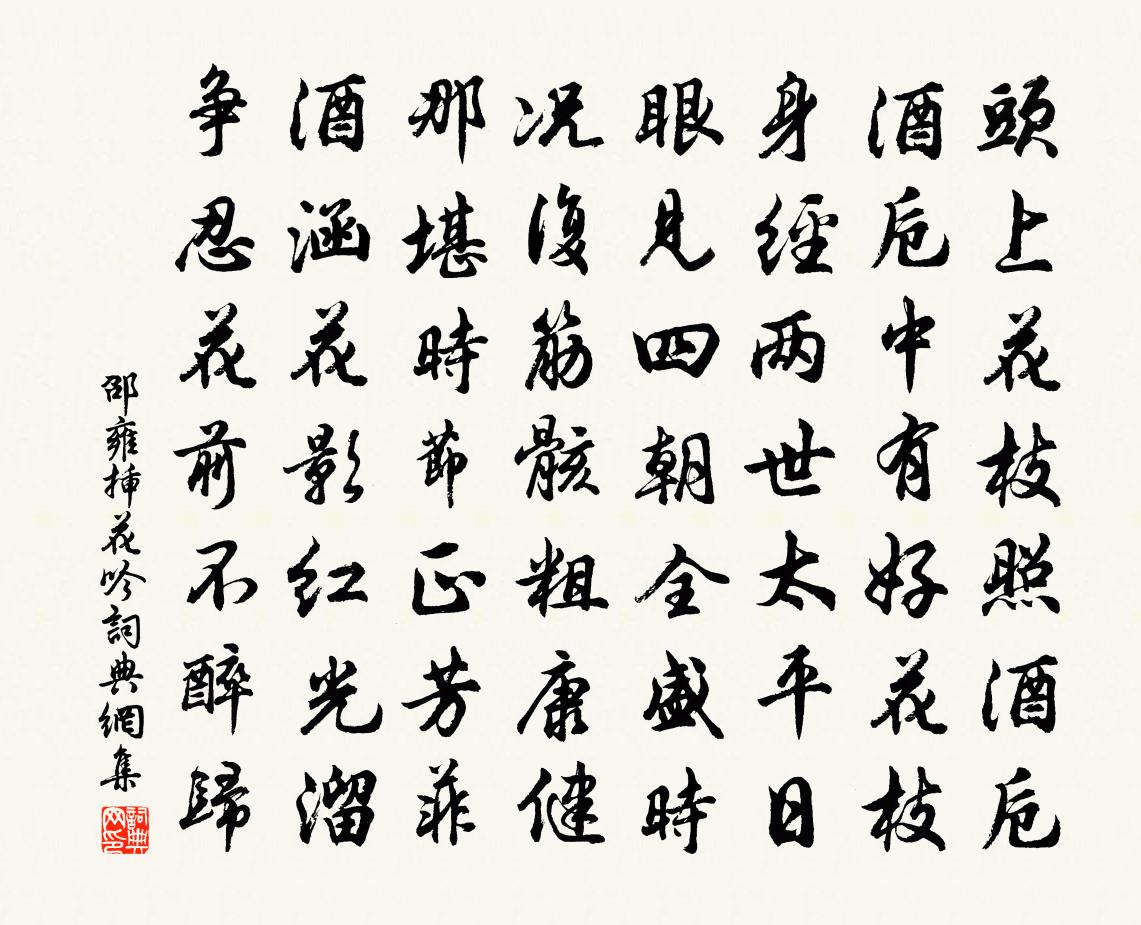 頭上花枝照酒卮
酒卮中有好花枝
身經两世太平日
眼見四朝全盛時
况復筋骸粗康健
那堪時節正芳菲
酒涵花影红光溜
争忍花前不醉歸
邵雍插花吟詞典網集
詞典网印